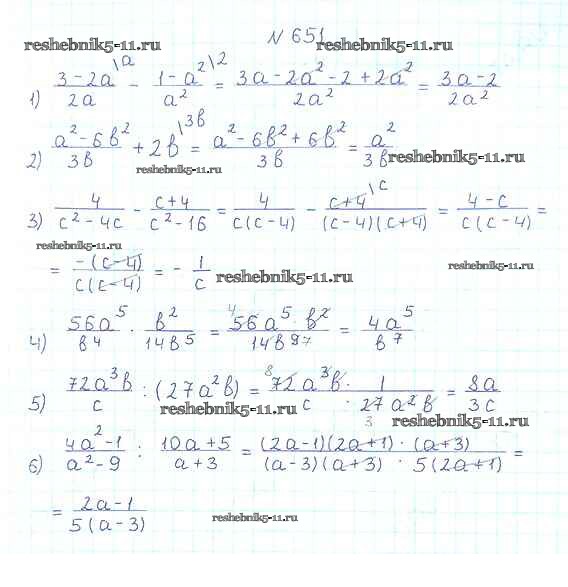 № 651
reshebnik5-11.ru reshebnik5-11.ru
1) (3-2a)/(2a) \a - (1-a²)/(a²) \2 = (3a-2a²-2+2a²)/(2a²) = (3a-2)/(2a²)
2) (a²-6b²)/(3b) + 2b \3b = (a²-6b²+6b²)/(3b) = a²/(3b) reshebnik5-11.ru
reshebnik5-11.ru
3) 4/(c²-4c) - (c+4)/(c²-16) = 4/(c(c-4)) - (c+4)/((c-4)(c+4)) \c = (4-c)/(c(c-4)) =
reshebnik5-11.ru
= (-(c-4))/(c(c-4)) = - 1/c reshebnik5-11.ru reshebnik5-11.ru
4) (56a⁵)/(b⁴) · (b²)/(14b⁵) = (4 56a⁵ · b²)/(14b⁹ ⁷) = (4a⁵)/(b⁷)
5) (72a³b)/c : (27a²b) = (8 72a³b · 1)/(c · 27a²b 3) = (8a)/(3c)
reshebnik5-11.ru reshebnik5-11.ru
6) (4a²-1)/(a²-9) : (10a+5)/(a+3) = ((2a-1)(2a+1) · (a+3))/((a-3)(a+3) · 5(2a+1)) =
= (2a-1)/(5(a-3)) reshebnik5-11.ru